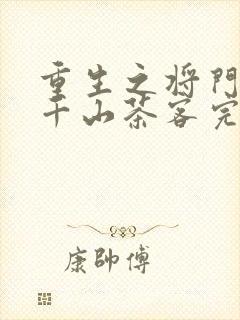 重生之将門
千山茶客完
康帥傅